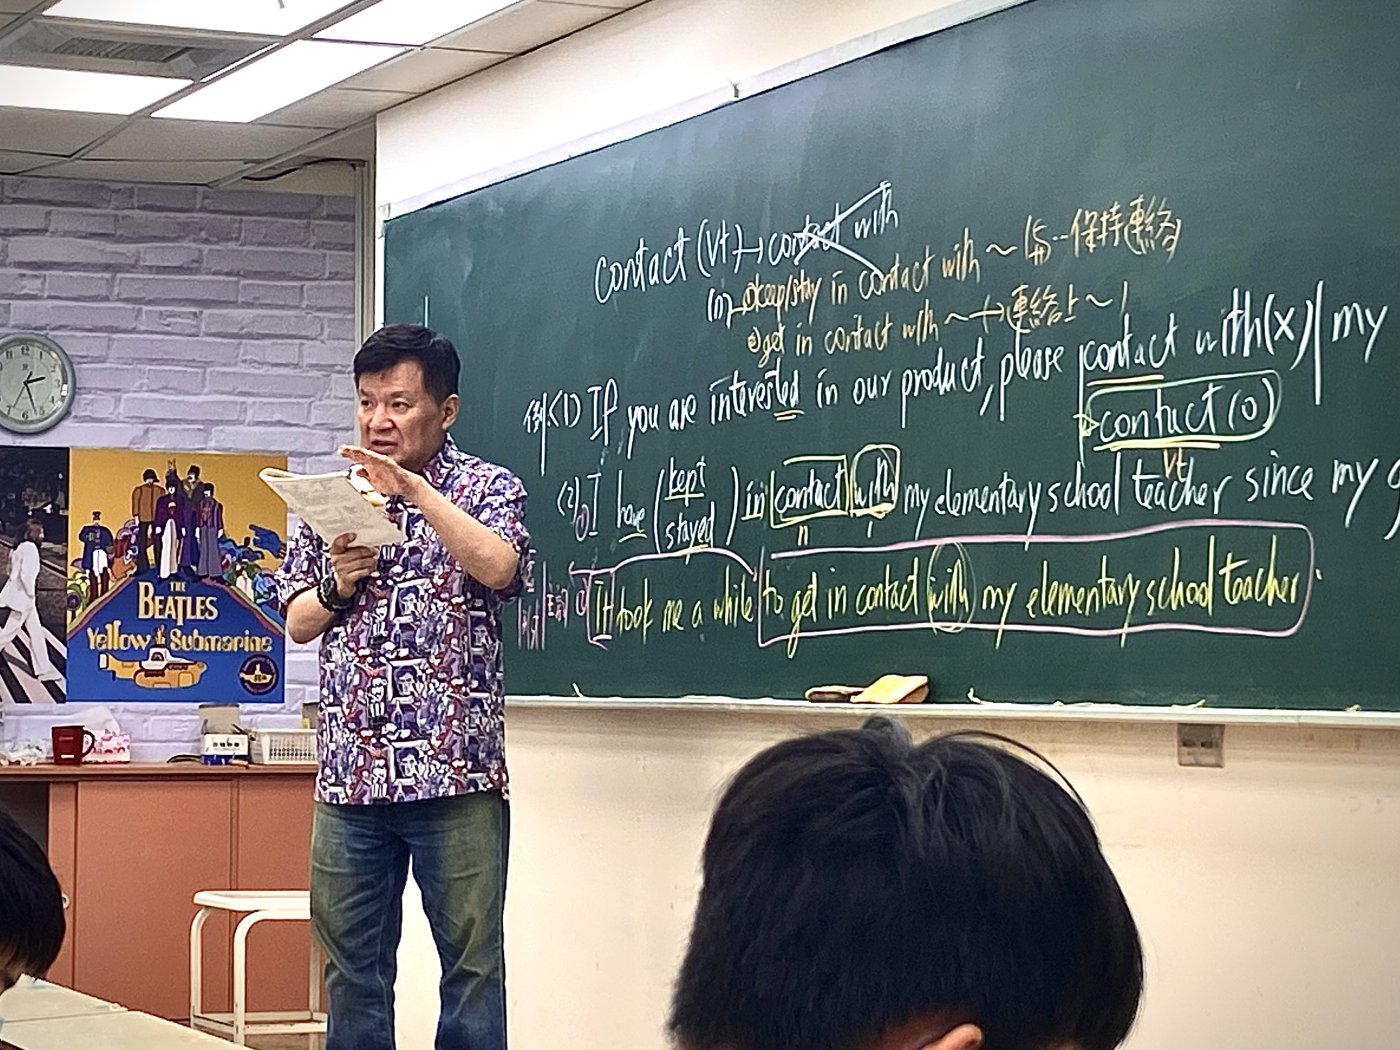 contact (Vt) → contact with
(n) → ①keep/stay in contact with ~ 保持連絡
②get in contact with ~ → 連絡上~
例<1> If you are interested in our product, please contact with(x) my
contact (o)
Vt
(kept
<2> ① I have stayed) in contact with my elementary school teacher since my
n
② It took me a while to get in contact with my elementary school teacher.
THE
BEATLES
Yellow Submarine